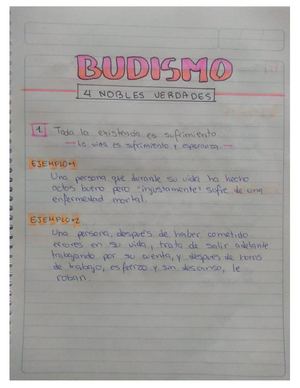 BUDISMO
4 NOBLES VERDADES
1. Toda la existencia es sufrimiento
→ la vida es sufrimiento y esperanza.
EJEMPLO #1
Una persona que durante su vida ha hecho
actos bueno pero "injustamente" sufre de una
enfermedad mortal.
EJEMPLO #2
Una persona, después de haber cometido
errores en su vida, trata de salir adelante
trabajando por su cuenta, y después de horas
de trabajo, esfuerzo y sin descanso, le
roban.